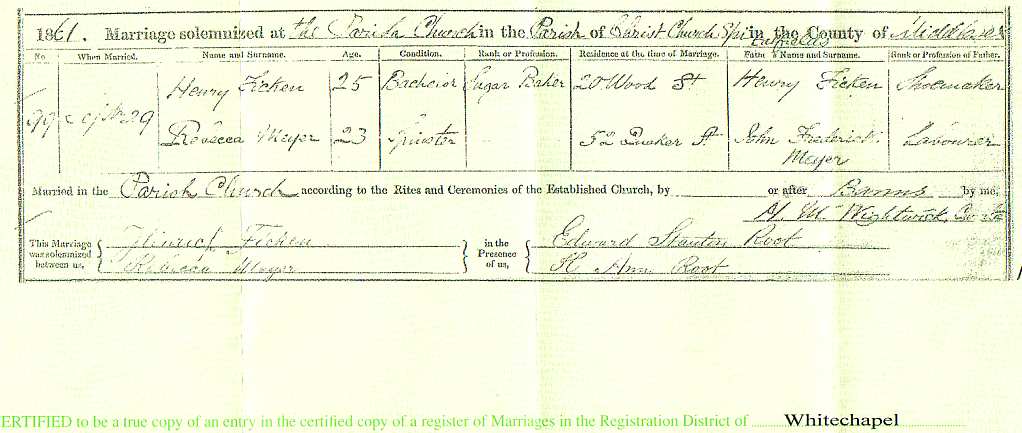 1861. Marriage solemnized at the Parish Church in the Parish of Christ Church Spitalfields in the County of Middlesex
No. When Married. Name and Surname. Age. Condition. Rank or Profession. Residence at the time of Marriage. Father's Name and Surname. Rank or Profession of Father.
99 29 Henry Ficken 25 Bachelor Sugar Baker 20 Wood St Henry Ficken Shoemaker
Rebecca Meyer 23 Spinster 52 Quaker St John Frederick Meyer Labourer
Married in the Parish Church according to the Rites and Ceremonies of the Established Church, by or after Banns by me,
Wightwick
This Marriage was solemnized between us, Hinrich Ficken in the Presence of us, Edward Stanton Root
Rebecca Meyer Ann Root
ERTIFIED to be a true copy of an entry in the certified copy of a register of Marriages in the Registration District of Whitechapel